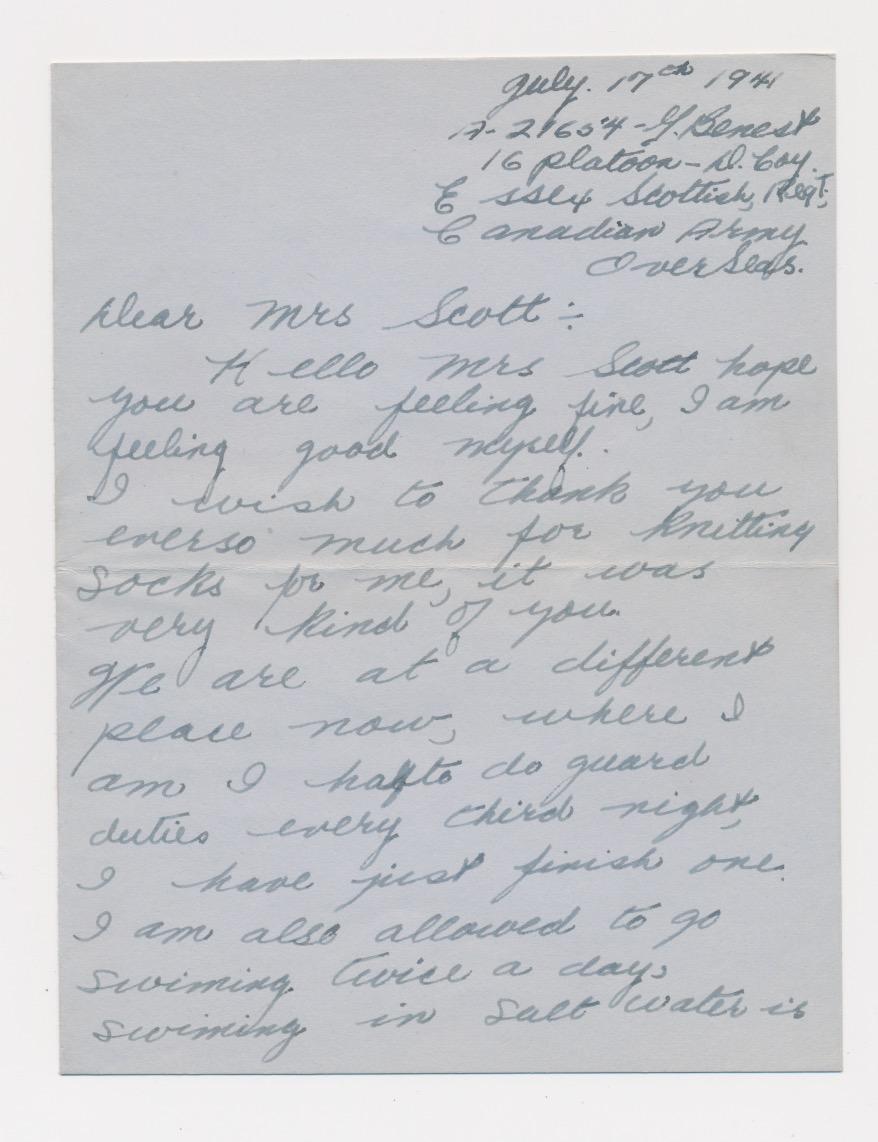 July. 17th 1941
A-21654-G.Benest
16 platoon-D.Coy.
Essex Scottish, Reg't,
Canadian Army
OverSeas.
Dear Mrs Scott:-
Hello Mrs Scott hope
you are feeling fine, I am
feeling good myself.
I wish to thank you
everso much for knitting
socks for me, it was
very kind of you.
We are at a different
place now, where I
am I hafto do guard
duties every third night,
I have just finish one.
I am also allowed to go
swiming twice a day,
swiming in salt water is